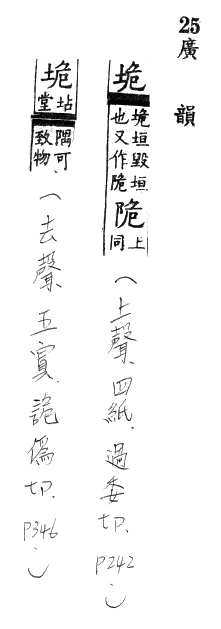 25 廣韻
垝垝垣毀垣也又作陒陒上同（上聲、四紙、過委切、P242、）
垝坫堂隅可致物（去聲、五寘、詭僞切、P346、）